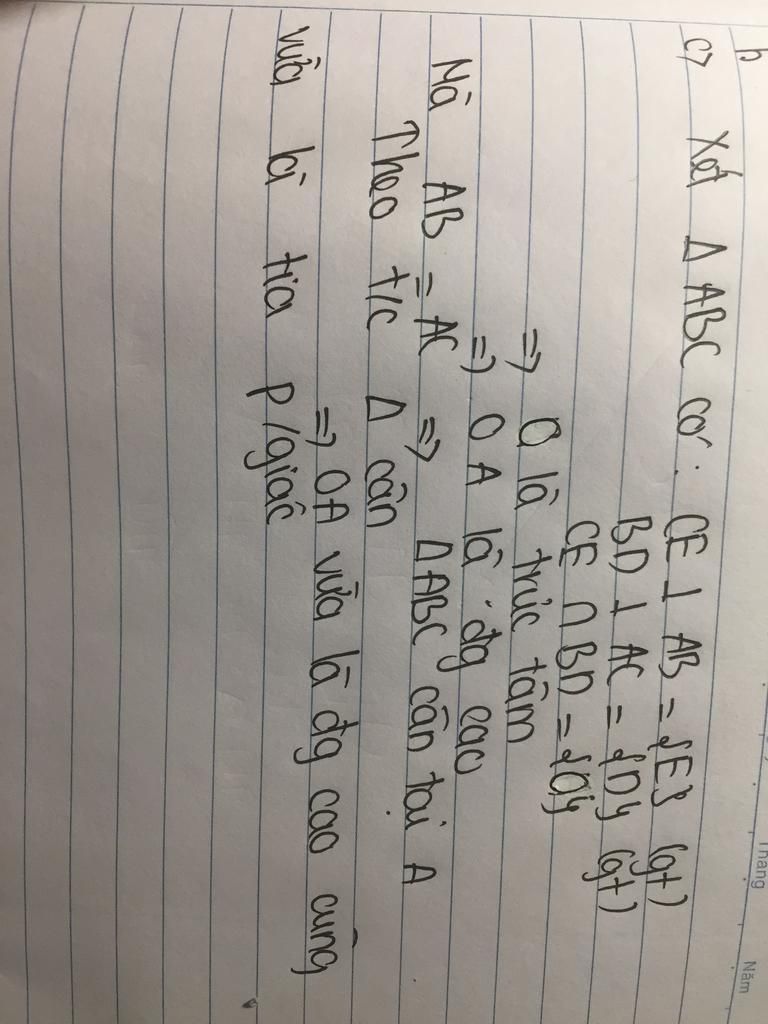 c) Xét Δ ABC có: CE ⊥ AB = {E} (gt)
BD ⊥ AC = {D} (gt)
CE ∩ BD = {O}
=> O là trực tâm
=> OA là đg cao
Mà AB = AC => ΔABC cân tại A
Theo t/c Δ cân
=> OA vừa là đg cao cũng
vừa là tia p/giác
Tháng
Năm